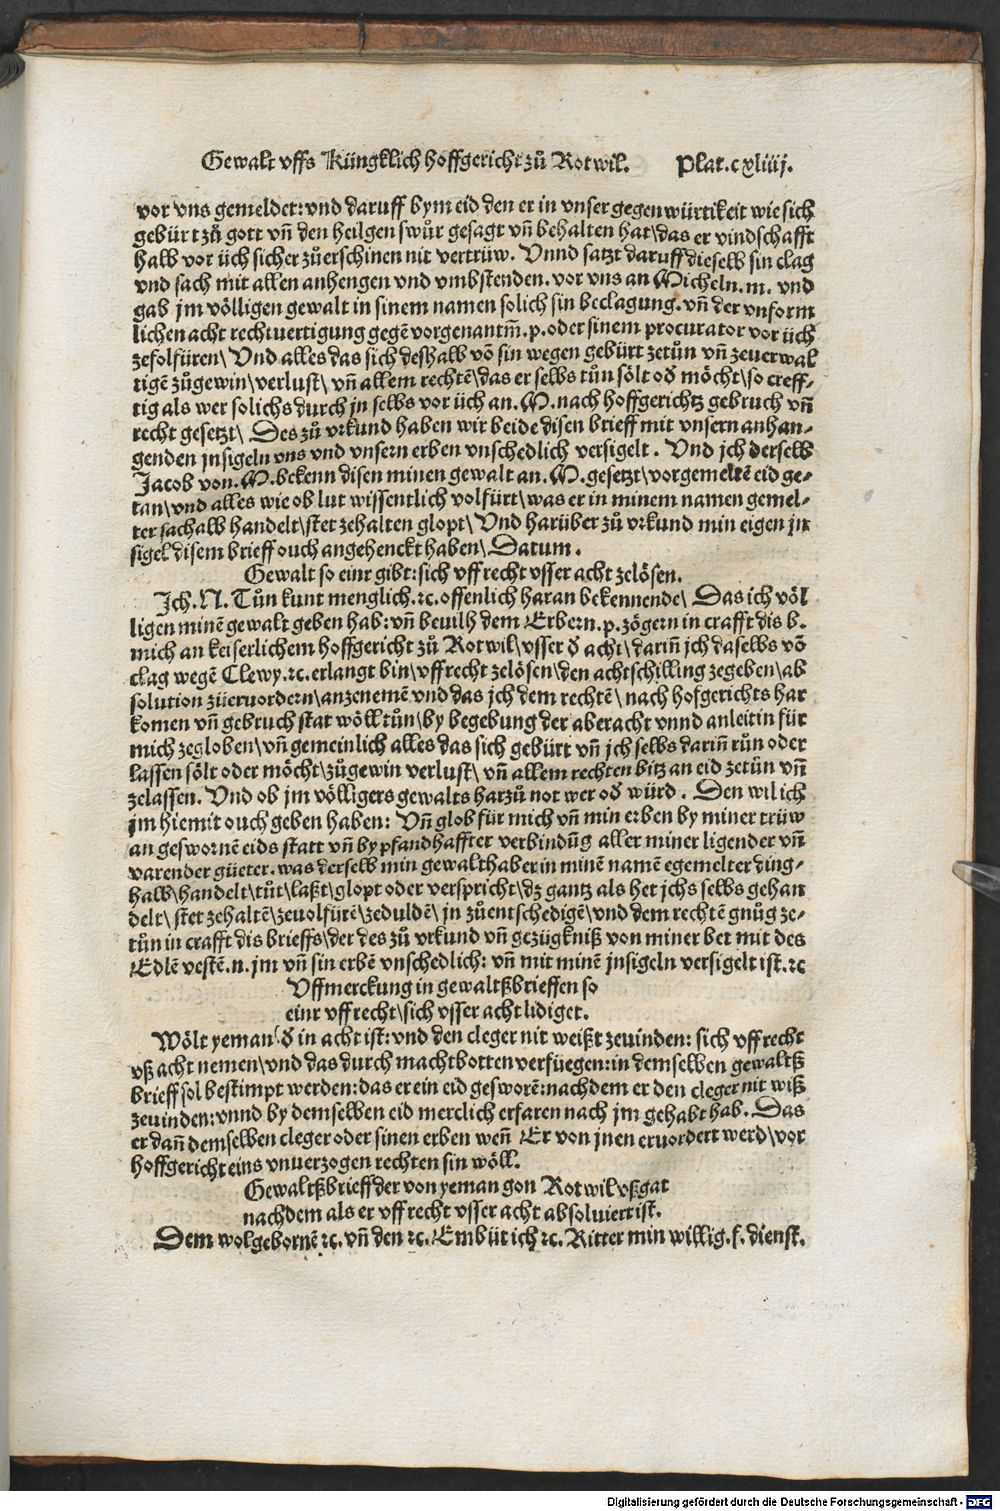 Gewalt vffs Küngklich hoffgericht zů Rotwil. Plat. cxliiij.
vor vns gemeldet: vnd daruff bym eid den er in vnser gegenwürtikeit wie sich
gebürt zů gott vñ den heilgen swůr gesagt vñ behalten hat\ das er vindschafft
halb vor üch sicher zůerschinen nit vertrüw. Vnnd satzt daruff dieselb sin clag
vnd sach mit allen anhengen vnd vmbstenden. vor vns an Micheln. m. vnd
gab jm völligen gewalt in sinem namen solich sin beclagung. vñ der vnform
lichen acht rechtuertigung gegẽ vorgenantm̃. p. oder sinem procurator vor üch
zefolfüren\ Vnd alles das sich deshalb võ sin wegen gebürt zetůn vñ zeuerwal
tigẽ zůgewin\ verlust\ vñ allem rechtẽ\ das er selbs tůn sölt oď möcht\ so creff-
tig als wer solichs durch jn selbs vor üch an. M. nach hoffgerichtz gebruch vñ
recht gesetzt\ Des zů vrkund haben wir beide disen brieff mit vnsern anhan-
genden jnsigeln vns vnd vnsern erben vnschedlich versigelt. Vnd jch derselb
Jacob von. M. bekenn disen minen gewalt an. M. gesetzt\ vorgemeltẽ eid ge-
tan\ vnd alles wie ob lut wissentlich volfürt\ was er in minem namen gemel-
ter sachalb handelt\ stet zehalten glopt\ Vnd harüber zů vrkund min eigen jn
sigel disem brieff ouch angehenckt haben\ Datum.
Gewalt so einr gibt: sich vff recht vsser acht zelösen.
Jch. N. Tůn kunt menglich. ⁊c. offenlich haran bekennende\ Das ich völ
ligen minẽ gewalt geben hab: vñ beuilh dem Erbern. p. zögern in crafft dis b.
mich an keiserlichem hoffgericht zů Rotwil\ vsser ď acht\ dariñ jch daselbs võ
clag wegẽ Clewy. ⁊c. erlangt bin\ vff recht zelösen\ den achtschilling zegeben\ ab
solution züeruordern\ anzenemẽ vnd das jch dem rechtẽ\ nach hofgerichts har
komen vñ gebruch stat wöll tůn\ by begebung der aberacht vnnd anleitin für
mich zegloben\ vñ gemeinlich alles das sich gebürt vñ jch selbs dariñ tůn oder
lassen sölt oder möcht\ zůgewin verlust\ vñ allem rechten bitz an eid zetůn vñ
zelassen. Vnd ob jm völligers gewalts harzů not wer oď würd. Den wil ich
jm hiemit ouch geben haben: Vñ glob für mich vñ min erben by miner trüw
an geswornẽ eids statt vñ by pfandhaffter verbindũg aller miner ligender vñ
varender güeter. was derselb min gewalthaber in minẽ namẽ egemelter ding-
halb\ handelt\ tůt\ laßt\ glopt oder verspricht\ dz gantz als het jchs selbs gehan
delt\ stet zehaltẽ\ zeuolfürẽ\ zeduldẽ\ jn zůentschedigẽ\ vnd dem rechtẽ gnůg ze-
tůn in crafft dis brieffs\ der des zů vrkund vñ gezügkniß von miner bet mit des
Edlẽ vestẽ. n. jm vñ sin erbẽ vnschedlich: vñ mit minẽ jnsigeln versigelt ist. ⁊c
Vffmerckung in gewaltßbrieffen so
einr vff recht\ sich vsser acht lidiget.
Wölt yeman ď in acht ist: vnd den cleger nit weißt zeuinden: sich vff recht
vß acht nemen\ vnd das durch machtbotten verfüegen: in demselben gewaltß
brieff sol bestimpt werden: das er ein eid gesworẽ: nachdem er den cleger nit wiß
zeuinden: vnnd by demselben eid merclich erfaren nach jm gehabt hab. Das
er dañ demselben cleger oder sinen erben weñ Er von jnen eruordert werd\ vor
hoffgericht eins vnuerzogen rechten sin wöll.
Gewaltßbrieff der von yeman gon Rotwil vßgat
nachdem als er vff recht vsser acht absoluiert ist.
Dem wolgebornẽ ⁊c. vñ den ⁊c. Embüt ich ⁊c. Ritter min willig. f. dienst.
Digitalisierung gefördert durch die Deutsche Forschungsgemeinschaft - DFG